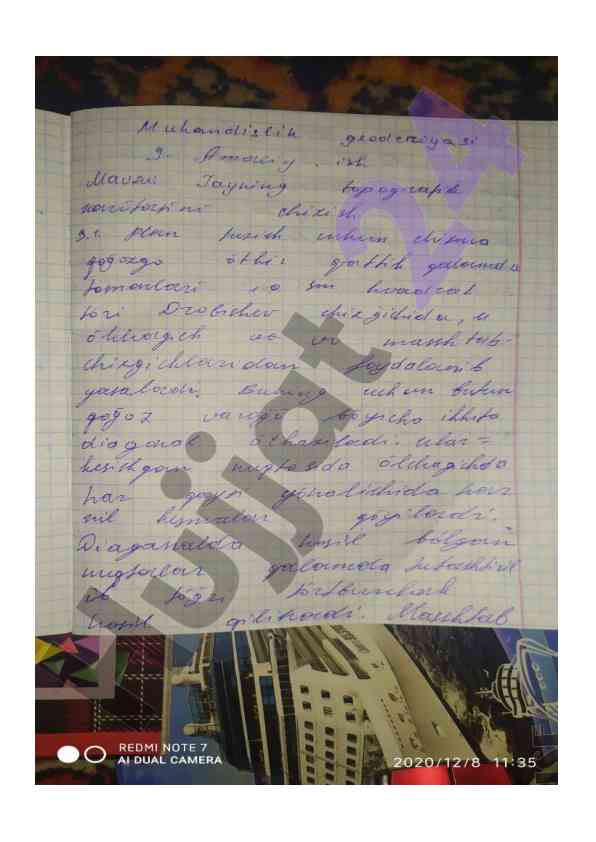 Muhandislik geodeziyasi
9. Amaliy ish
Mavzu Joyning topografik
xaritasini chizish
9.1 plan tuzish uchun chizma
qog'ozga o'tkir qattik qalamda
tomonlari 10 sm kvadrat
tori Drobishev chizgichida, u
o'lchagich va masshtab-
chizgichlaridan foydalanib
yasaladi. Buning uchun butun
qog'oz varog'i boyicha ikkita
diagonal o'tkaziladi. ular
kesishgan nuqtasida o'lchagichda
har qaysi yonalishida har
xil kesmalar qoyiladi.
Diaganalda hosil bolgan
nuqtalar qalamda tutashtiril
ib tog'ri tortburchak
hosil qilinadi. Masshtab
Hujjat 24
REDMI NOTE 7
AI DUAL CAMERA
2020/12/8 11:35